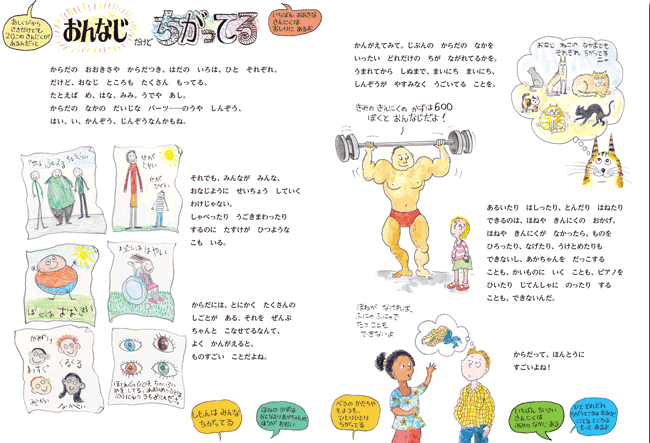 あしくびから
さきだけでも
20この きんにくが
あるんだって
おんなじ だけど ちがってる
いちばん おおきな
きんにくは
おしりに あるよ
からだの おおきさや からだつき、はだの いろは、ひと それぞれ。
だけど、おなじ ところも たくさん もってる。
たとえば め、はな、みみ。うでや あし。
からだの なかの だいじな パーツ──のうや しんぞう、
はい、い、かんぞう、じんぞうなんかもね。
せが
たかい
せが
ひくい
それでも、みんなが みんな、
おなじように せいちょう していく
わけじゃない。
しゃべったり うごきまわったり
するのに たすけが ひつような
こも いる。
わたしははやい
ぼくは おおきい
からだには、とにかく たくさんの
しごとが ある。それを ぜんぶ
ちゃんと こなせてるなんて、
よく かんがえると、
ものすごい ことだよね。
かみがい
まっすぐ
くるくる
みじかい
ながい
しもんは みんな
ちがってる
ほねの かずは
おとなより あかちゃんの
ほうが おおい
かんがえてみて。じぶんの からだの なかを
いったい どれだけの ちが ながれてるかを。
うまれてから しぬまで、まいにち まいにち、
しんぞうが やすみなく うごいてる ことを。
おなじ ねこの なかまでも
それぞれ ちがってる
ニャ
きみの きんにくの かずは600
ぼくと おんなじだよ!
あるいたり はしったり、とんだり はねたり
できるのは、ほねや きんにくの おかげ。
ほねや きんにくが なかったら、ものを
ひろったり、なげたり、うけとめたりも
できないし、あかちゃんを だっこする
ことも、かいものに いく ことも、ピアノを
ひいたり じてんしゃに のったり する
ことも、できないんだ。
ほねが なければ、
ふにゃふにゃで
たつ ことも
できないよ
からだって、ほんとうに
すごいよね!
べろの かたちや
もようも、
ひとりひとり
ちがってる
いちばん ちいさい
きんにくは
みみの なかに ある